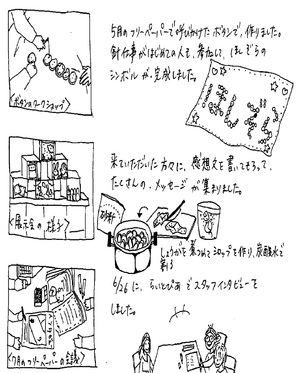 5月のフリーペーパーで呼びかけたボタンで、作りました。
針仕事がはじめての人も、参加して、ほしぞらの
シンボルが、完成しました。
<ボタンのワークショップ>
ほしぞら
来ていただいた方々に、感想文を書いてもらって、
たくさんの、メッセージが集まりました。
<展示会の様子>
砂糖
しょうがを煮つめてシロップを作り、炭酸水で
割る
6/26に、らいとぴあでスタッフインタビューを
しました。
<7月のフリーペーパーの会議>